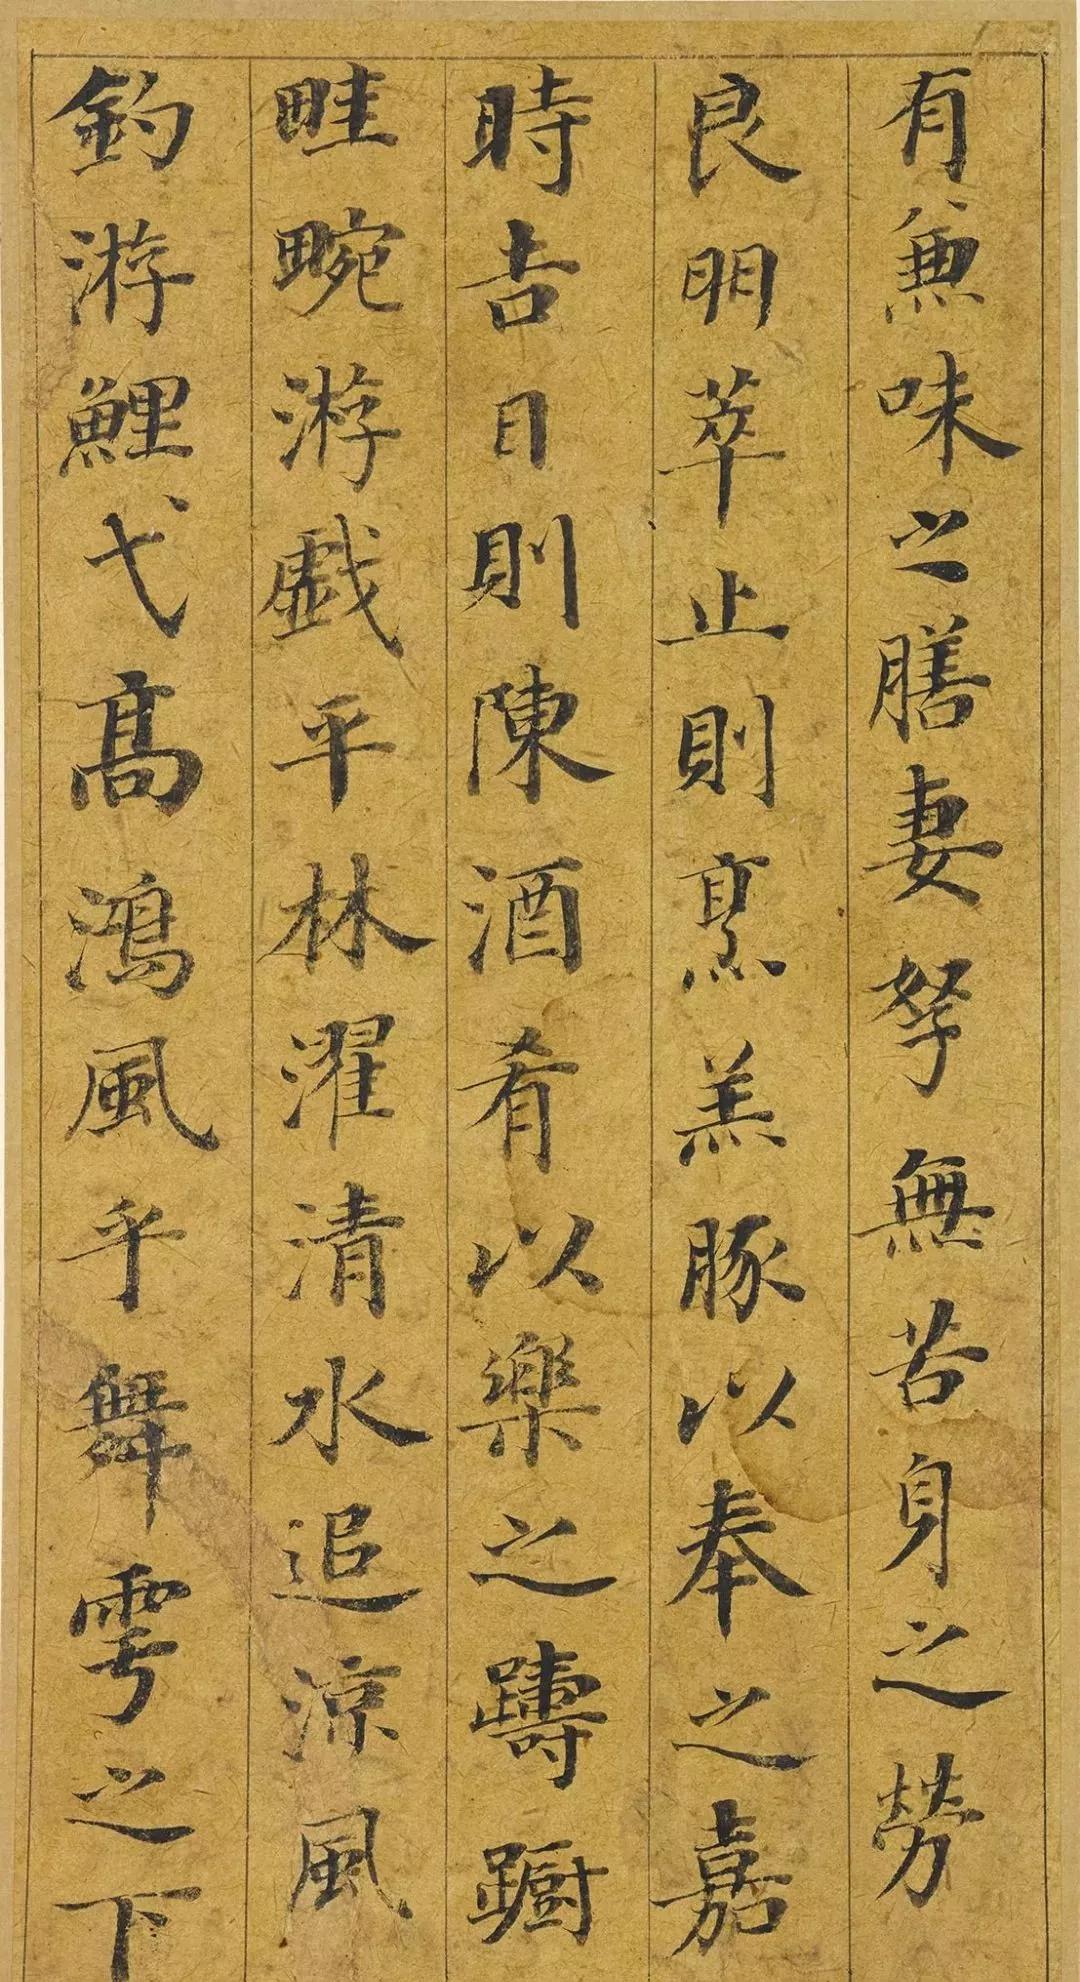 有兼味之膳妻孥無苦身之勞
良明萃止則烹羔豚以奉之嘉
時吉日則陳酒肴以樂之躊躕
畦畹游戲平林濯清水追涼風
釣游鯉弋高鴻風乎舞雩之下